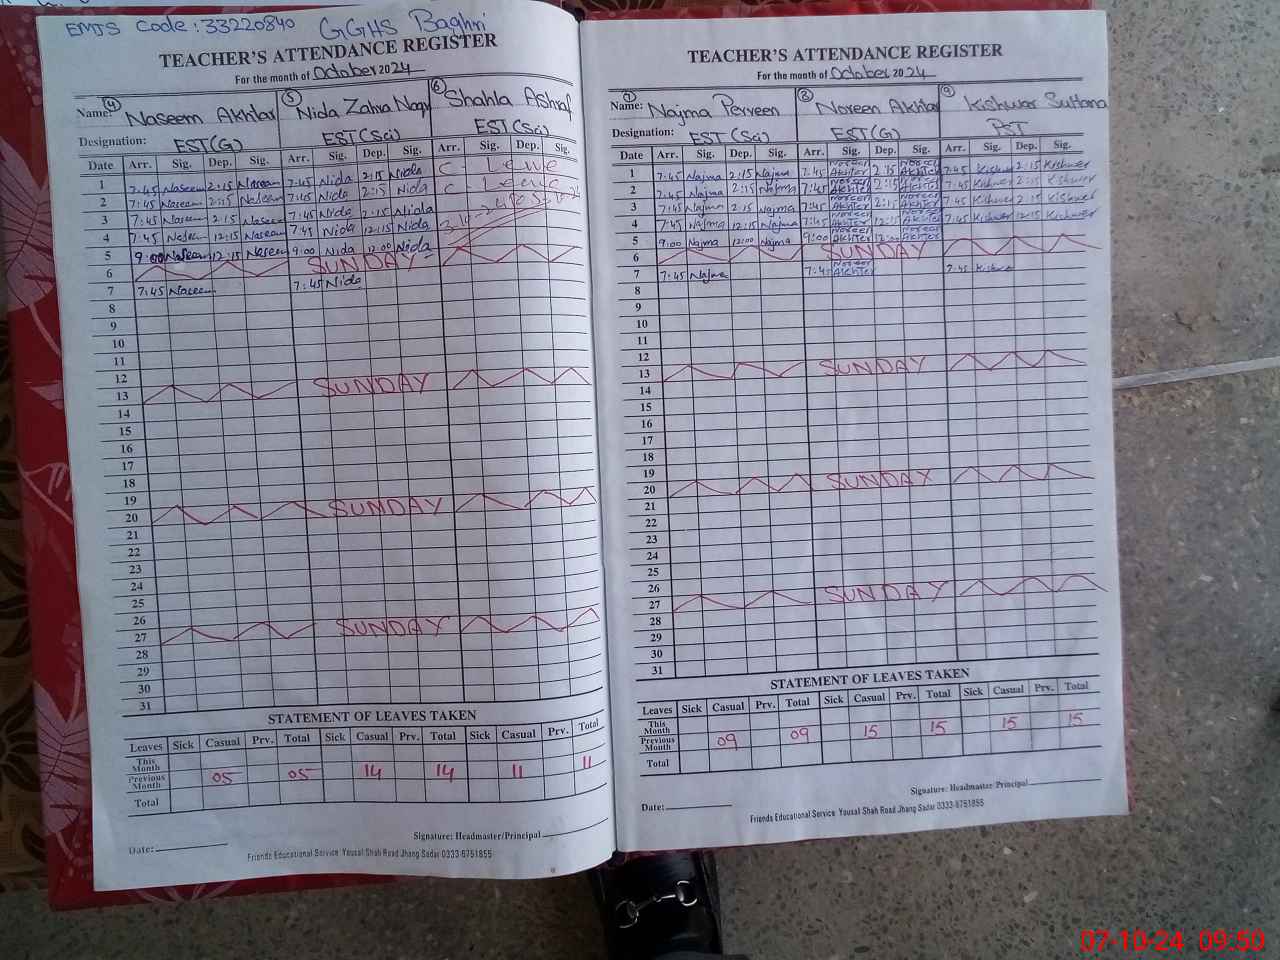 EMIS Code : 33220840 GGHS Baghri
TEACHER'S ATTENDANCE REGISTER
For the month of October 2024
Name: ④ Naseem Akhtar ⑤ Nida Zahra Naqvi ⑥ Shahla Ashraf
Designation: EST(G) EST(Sci) EST(Sci)
Date Arr. Sig. Dep. Sig. Arr. Sig. Dep. Sig. Arr. Sig. Dep. Sig.
1 7:45 Naseem 2:15 Naseem 7:45 Nida 2:15 Nida C - Leave
2 7:45 Naseem 2:15 Naseem 7:45 Nida 2:15 Nida C - Leave
3 7:45 Naseem 2:15 Naseem 7:45 Nida 2:15 Nida
4 7:45 Naseem 12:15 Naseem 7:45 Nida 12:15 Nida
5 9:00 Naseem 12:15 Naseem 9:00 Nida 12:00 Nida
6 SUNDAY
7 7:45 Naseem 7:45 Nida
8
9
10
11
12
13 SUNDAY
14
15
16
17
18
19
20 SUNDAY
21
22
23
24
25
26
27 SUNDAY
28
29
30
31
STATEMENT OF LEAVES TAKEN
Leaves Sick Casual Prv. Total Sick Casual Prv. Total Sick Casual Prv. Total
This Month
Previous Month 05 05 14 14 11 11
Total
Signature: Headmaster/Principal
Date:
Friends Educational Service Yousaf Shah Road Jhang Sadar 0333-6751855
TEACHER'S ATTENDANCE REGISTER
For the month of October 2024
Name: ⑦ Najma Perveen ⑧ Noreen Akhtar ⑨ Kishwar Sultana
Designation: EST(Sci) EST(G) PST
Date Arr. Sig. Dep. Sig. Arr. Sig. Dep. Sig. Arr. Sig. Dep. Sig.
1 7:45 Najma 2:15 Najma 7:45 Noreen Akhter 2:15 Noreen Akhter 7:45 Kishwer 2:15 Kishwer
2 7:45 Najma 2:15 Najma 7:45 Noreen Akhter 2:15 Noreen Akhter 7:45 Kishwer 2:15 Kishwer
3 7:45 Najma 2:15 Najma 7:45 Noreen Akhter 2:15 Noreen Akhter 7:45 Kishwer 2:15 Kishwer
4 7:45 Najma 12:15 Najma 7:45 Noreen Akhter 12:15 Noreen Akhter 7:45 Kishwer 12:15 Kishwer
5 9:00 Najma 12:00 Najma 9:00 Noreen Akhter 12:00 Noreen Akhter
6 SUNDAY
7 7:45 Najma 7:45 Noreen Akhter 7:45 Kishwer
8
9
10
11
12
13 SUNDAY
14
15
16
17
18
19
20 SUNDAY
21
22
23
24
25
26
27 SUNDAY
28
29
30
31
STATEMENT OF LEAVES TAKEN
Leaves Sick Casual Prv. Total Sick Casual Prv. Total Sick Casual Prv. Total
This Month
Previous Month 09 09 15 15 15 15
Total
Signature: Headmaster/Principal
Date:
Friends Educational Service Yousaf Shah Road Jhang Sadar 0333-6751855
07-10-24 09:50